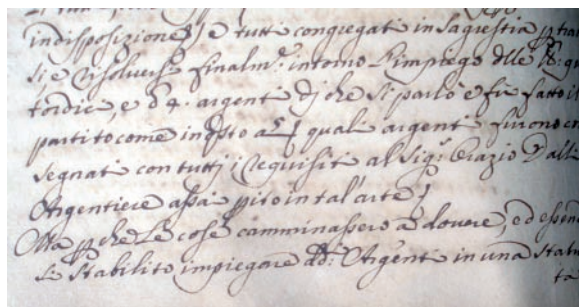 indisposizione) e tutti congregati in Sagrestia p trat
si, e risolversi finalm.e intorno l'impiego delle
tordici, e d 4. argenti di che si parlò e fù fatto il
partito come in qsto a quali argenti furono con
segnati con tutti i requisiti al Sig.r Orazio Dalli
Argentiere assai pito in tal'arte
Ma p che le cose camminassero à dovere, ed essend
si stabilito impiegare dd.i Argenti in una statu
ta